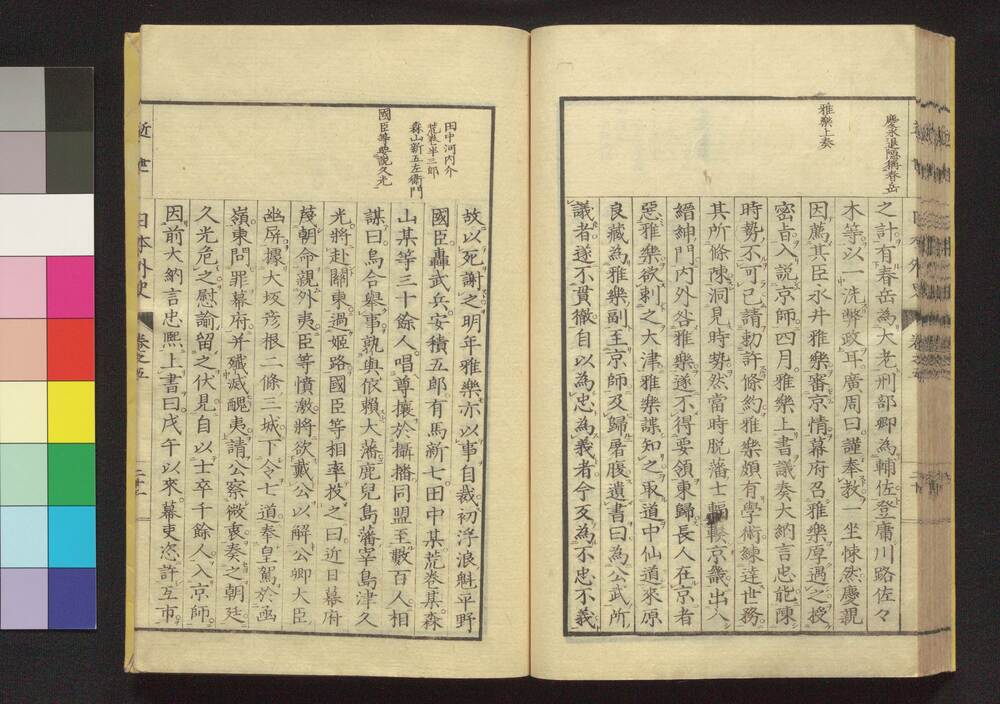 慶永退隱稱春岳
雅樂上奏
之計有春岳為大老刑部卿為輔佐登庸川路佐々
木等以一洗弊政耳廣周曰謹奉教一坐悚然慶親
因薦其臣永井雅樂審京情幕府召雅樂厚遇之授
密旨入説京師四月雅樂上書議奏大納言忠能陳
時勢不可已請勅許條約雅樂頗有學術練達世務
其所條陳洞見時勢然當時脱藩士輻輳京畿出入
縉紳門内外咎雅樂遂不得要領東歸長人在京者
惡雅樂欲刺之大津雅樂諜知之取道中仙道來原
良藏為雅樂副王京師及歸屠腹遺書曰為公武所
議者遂不貫徹自以為忠為義者今反為不忠不義
田中河内介
荒巻半三郎
森山新五左衛門
國臣等遊説久光
故以死謝之明年雅樂亦以事自裁初浮浪魁平野
國臣轟武兵安積五郎有馬新七田中某荒巻某森
山某等三十餘人唱尊攘於攝播同盟至數百人相
謀曰烏合舉事孰與依賴大藩鹿兒島藩宰島津久
光將赴關東過姬路國臣等相率投之曰近日幕府
蔑朝命親外夷臣等憤激將欲戴公以解公卿大臣
幽屏據大坂彥根二條三城下令七道奉皇駕於函
嶺東問罪幕府并殲滅醜夷請公察微衷奏之朝廷
久光危之慰諭留之伏見自以士卒千餘人入京師
因前大納言忠熙上書曰戊午以來幕吏恣許互市
近世
日本外史
卷之五